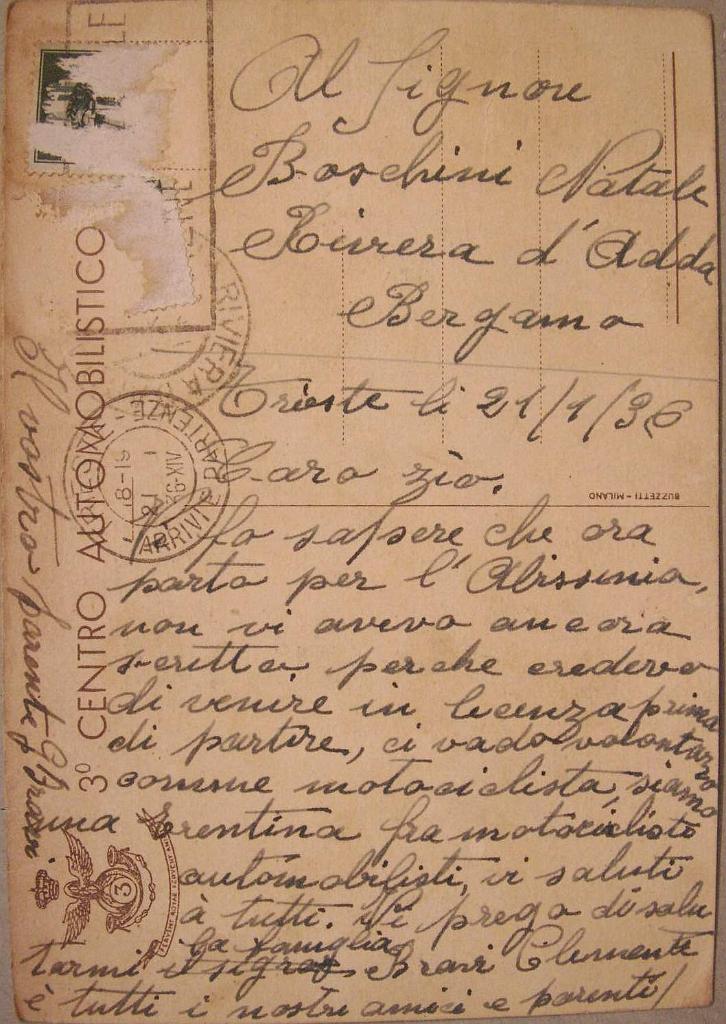 Al Signore
Boschini Natale
Riviera d'Adda
Bergamo
Trieste li 21/1/36
Caro zio.
Fo sapere che ora
parto per l'Abissinia,
non vi avevo ancora
scritto perche credevo
di venire in licenza prima
di partire, ci vado volontario
comme motociclista, siamo
una trentina fra motociclisti
automobilisti, vi saluti
à tutti. Vi prego di salu
tarmi la famiglia Bravi Clemente
è tutti i nostri amici e parenti
Il vostro parente
3º CENTRO AUTOMOBILISTICO
BUZZETTI - MILANO
RIVIERA
ARRIVI E PARTENZE
18-19
21 1
36-XIV
3